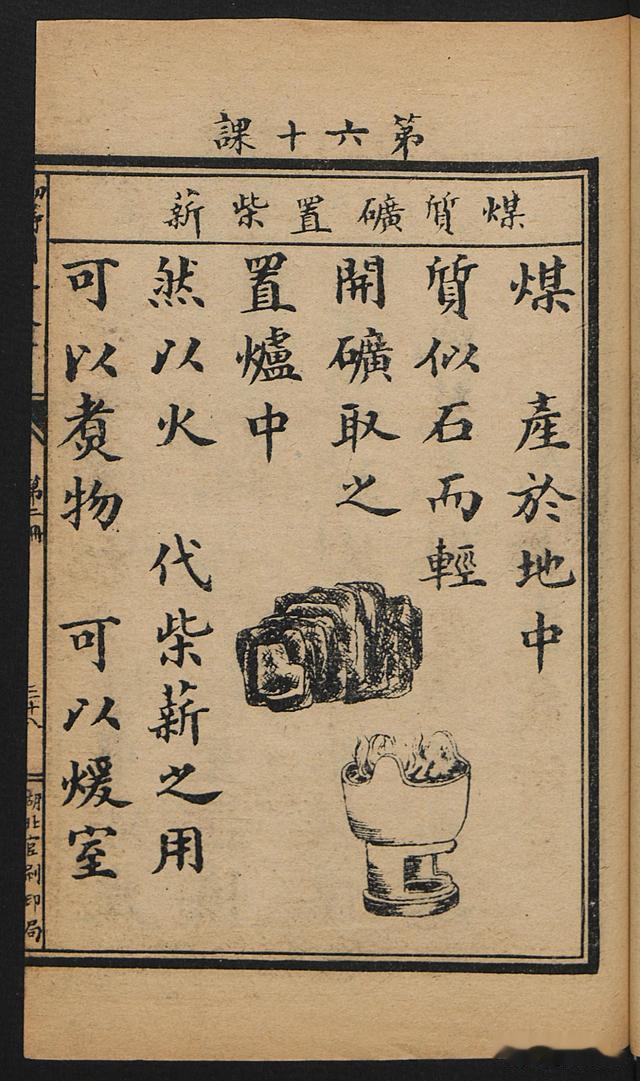 第六十課
煤 質 礦 置 柴 薪
煤 產於地中
質似石而輕
開礦取之
置爐中
然以火 代柴薪之用
可以煑物 可以煖室
第二冊
三十八
湖北官刷印局